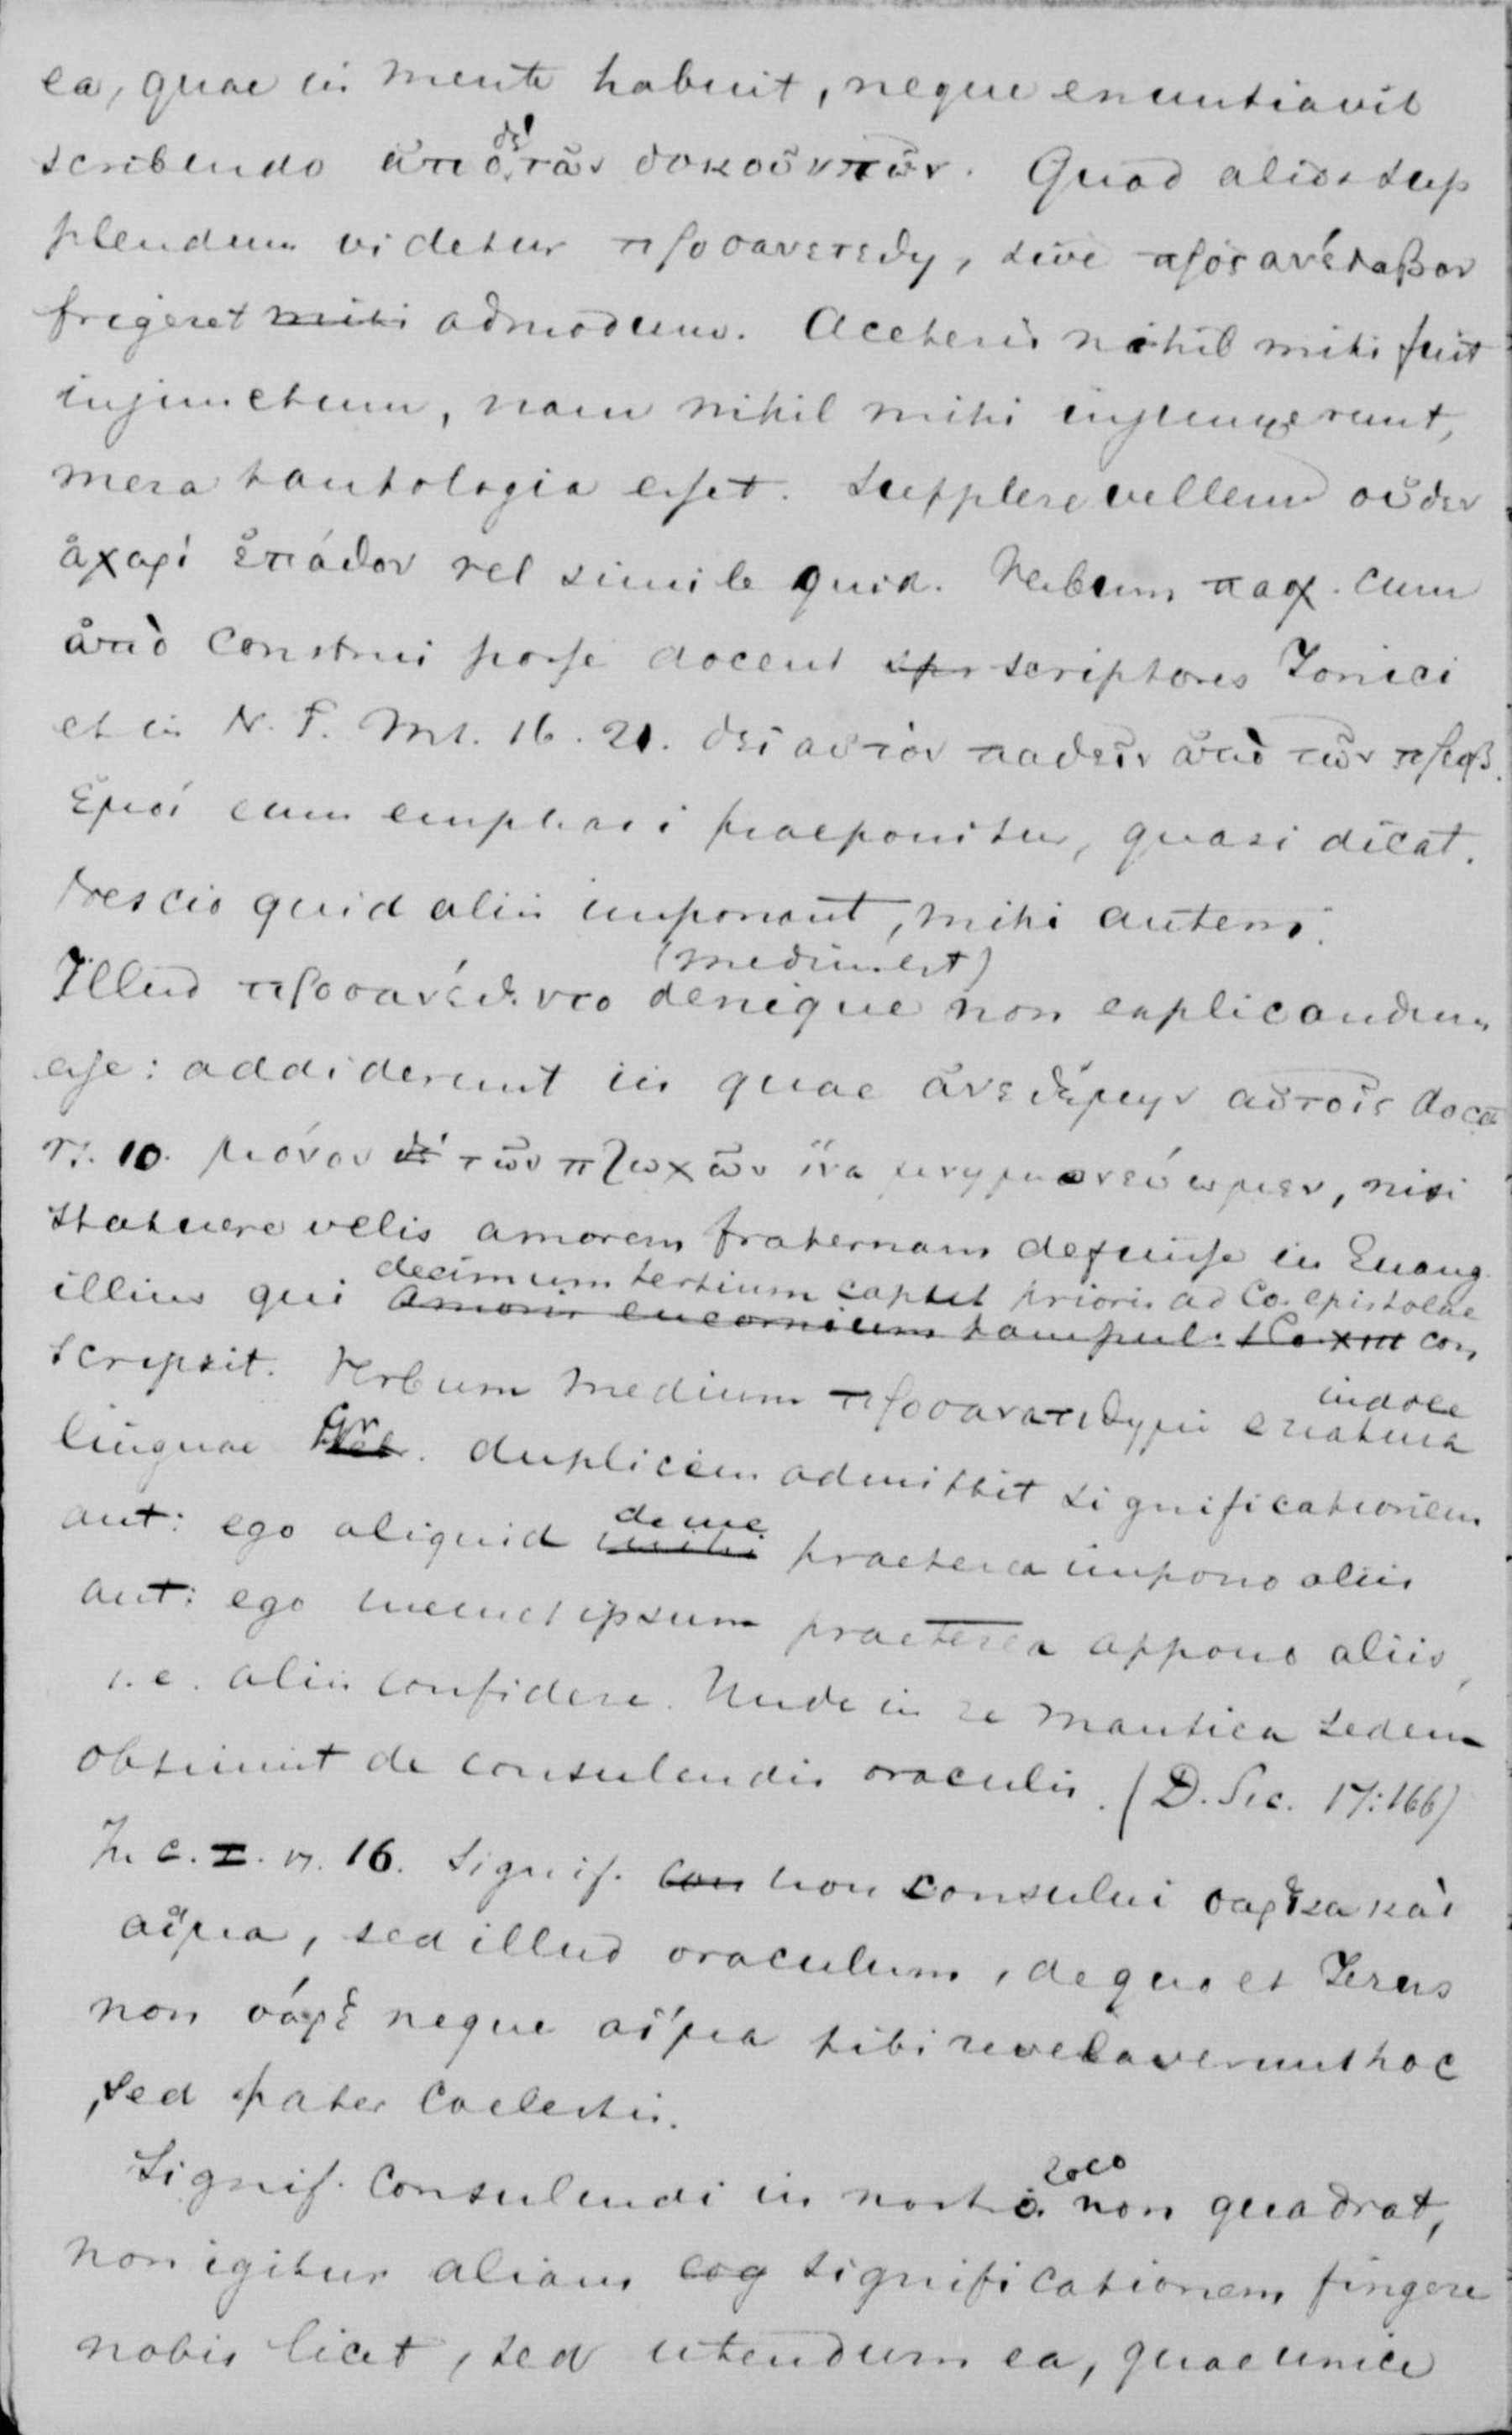 ea, quae in mente habuit, neque enuntiavit
scribendo ἀπὸ δέ τῶν δοκούντων. Quod aliis sup
plendum videtur προσανετέθη, sive προσανέλαβον
frigeret mihi admodum. A ceteris nihil mihi fuit
injunctum, nam nihil mihi injunxerunt,
mera tautologia esset. Supplere vellem οὐδεν
ἀχαρί ἐπάθον vel simile quid. Verbum πασχ. cum
ἀπὸ construi posse docent scriptores Ionici
et in N. T. Mt. 16. 21. δεῖ αυτὸν παθεῖν ἀπὸ τῶν πρεσβ.
Ἐμοί cum emphasi praeponitur, quasi dicat.
Nescio quid aliis imponant, mihi autem.
(medium est)
Illud προσανέθεντο denique non explicandum
esse: addiderunt iis quae ἀνεθέμην αὐτοῖς docet
vs. 10. μόνον δέ τῶν πτωχῶν ἵνα μνημονεύωμεν, nisi
statuere velis amorem fraternam defuisse in Euang.
decimum tertium caput prioris ad Co. epistolae
illius qui amoris encomium con
scripsit. Verbum medium προσανατιθημι e natura
indole
linguae Gr. duplicem admittit significationem
aut: ego aliquid de me praeterea impono aliis
aut: ego memet ipsum praeterea appono aliis,
i.e. aliis confidere. Unde in re mantica sedem
obtinuit de consulendis oraculis. (D. Sic. 17:166)
In c. I. vs. 16. Signif. con non consului σαρκα καὶ
αἷμα, sed illud oraculum, de quo et Iesus
non σάρξ neque αἷμα tibi revelaverunt hoc
, sed pater coelestis.
Signif. consulendi in nostro loco non quadrat,
non igitur aliam cog significationem fingere
nobis licet, sed utendum ea, quae unice